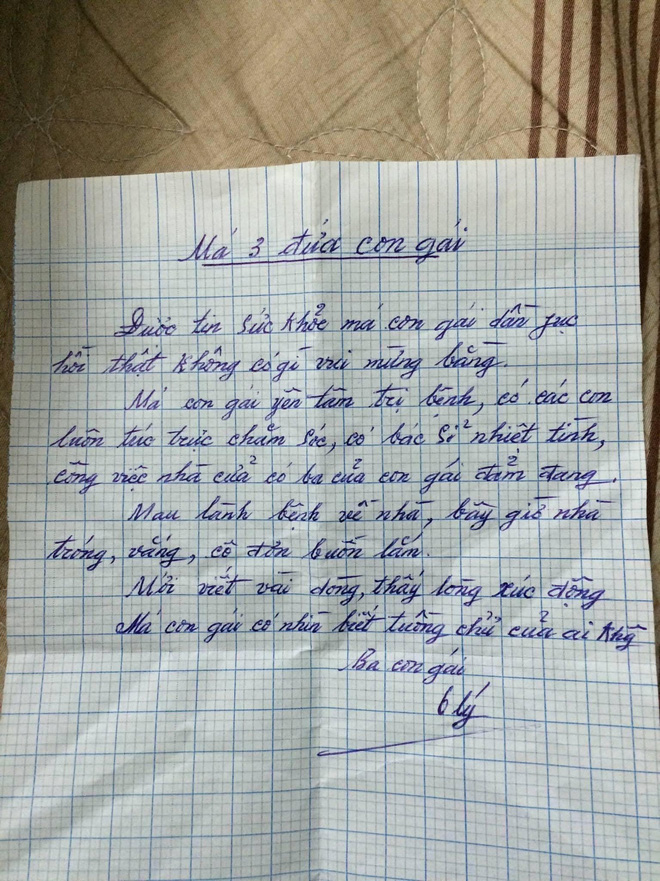 Má 3 đứa con gái
Được tin sức khỏe má con gái dần phục
hồi thật không có gì vui mừng bằng.
Má con gái yên tâm trị bệnh, có các con
luôn túc trực chăm sóc, có bác sĩ nhiệt tình,
công việc nhà cửa có ba của con gái đảm đang.
Mau lành bệnh về nhà, bây giờ nhà
trống, vắng, cô đơn buồn lắm.
Mới viết vài dòng, thấy lòng xúc động
Má con gái có nhìn biết tuồng chữ của ai khg
Ba con gái
6 lý